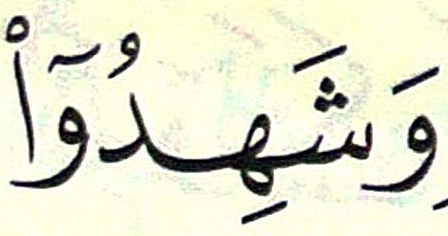 وَشَهِدُوٓا۟